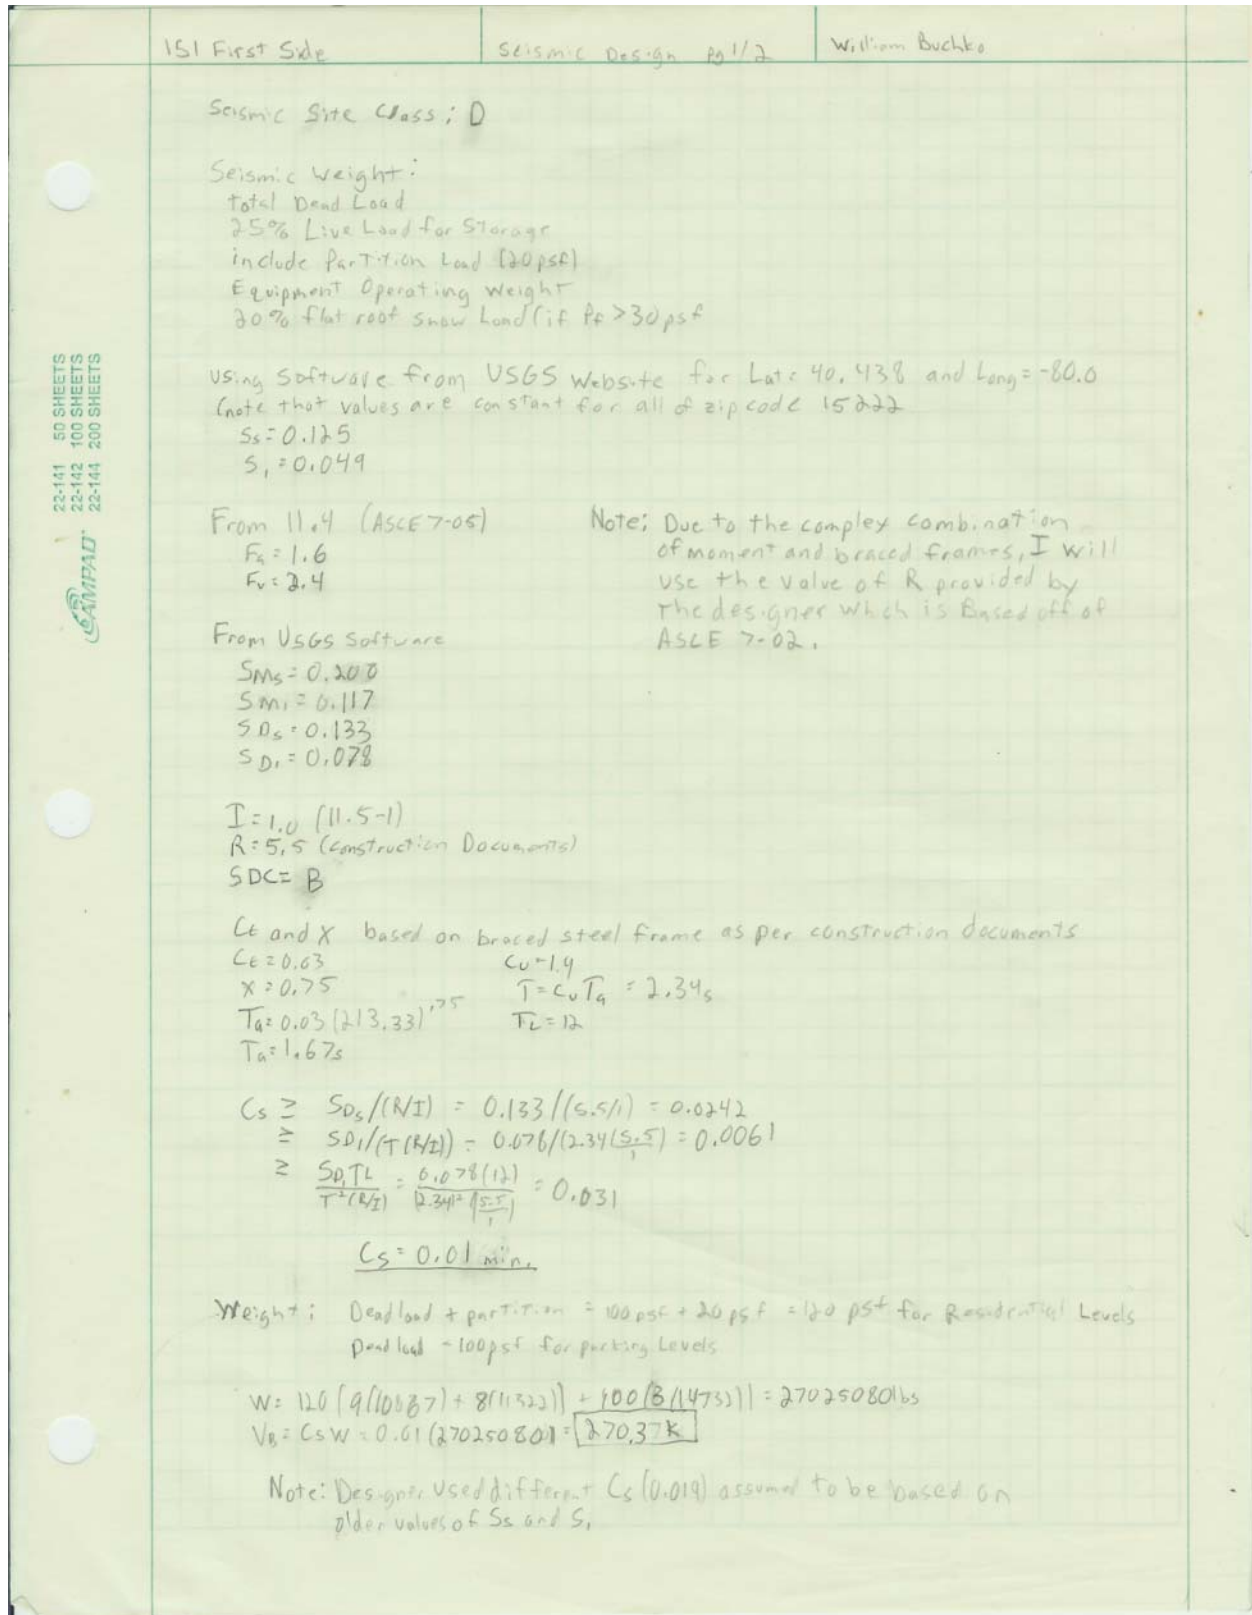 151 First Side
Seismic Design pg 1/2
William Buchko
Seismic Site Class: D
Seismic Weight:
total Dead Load
25% Live Load for Storage
include Partition Load (20psf)
Equipment Operating Weight
20% flat roof snow Load (if Pf >30psf
Using Software from USGS Website for Lat: 40.438 and Long=-80.0
(note that values are constant for all of zip code 15222
Ss=0.125
S1=0.049
From 11.4 (ASCE 7-05)
Fa=1.6
Fv=2.4
Note: Due to the complex combination
of moment and braced frames, I will
use the value of R provided by
The designer which is Based off of
ASCE 7-02.
From USGS Software
SMs=0.200
SM1=0.117
SDs=0.133
SD1=0.078
I=1.0 (11.5-1)
R=5.5 (Construction Documents)
SDC= B
Ct and X based on braced steel frame as per construction documents
Ct=0.03
Cu=1.4
X=0.75
T=CuTa = 2.34s
Ta=0.03(213.33)^.75
TL=12
Ta=1.67s
Cs ≥ SDs/(R/I) = 0.133/(5.5/1) = 0.0242
≥ SD1/(T(R/I)) = 0.078/(2.34(5.5/1) = 0.0061
≥ SD1TL/T²(R/I) = 0.078(12)/(2.34)²(5.5/1) = 0.031
Cs=0.01 min.
Weight: Dead load + partition = 100psf + 20psf = 120 psf for Residential Levels
Dead load = 100psf for parking Levels
W= 120[9(10687)+8(11322)] + 100[3(14732)] = 27025080lbs
VB=CsW=0.01(27025080)= 270.37k
Note: Designer used different Cs (0.019) assumed to be based on
older values of Ss and S1
22-141 50 SHEETS
22-142 100 SHEETS
22-144 200 SHEETS
AMPAD